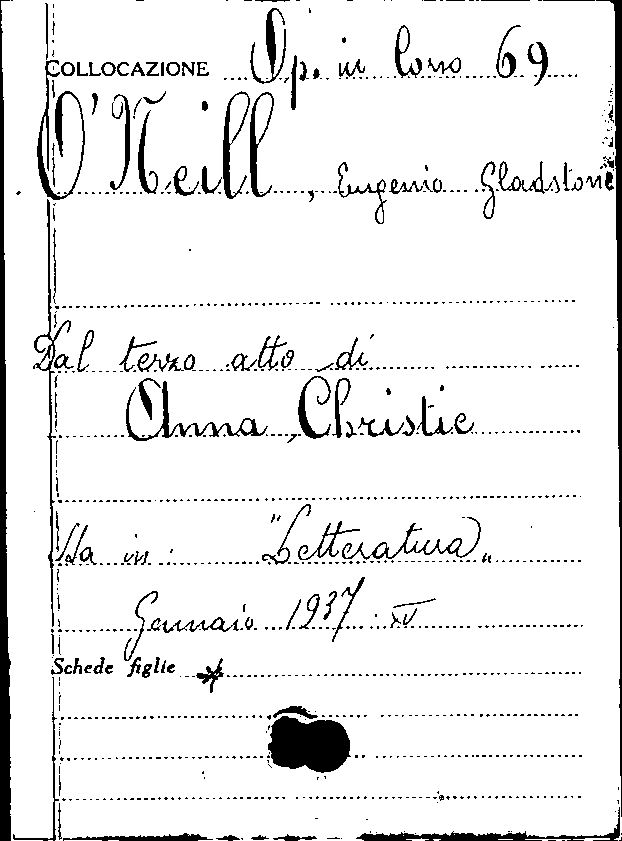 COLLOCAZIONE Op. in Corso 69
O'Neill, Eugenio Gladstone
Dal terzo atto di
Anna Christie
Sta in: "Letteratura"
Gennaio 1937. XV
Schede figlie *